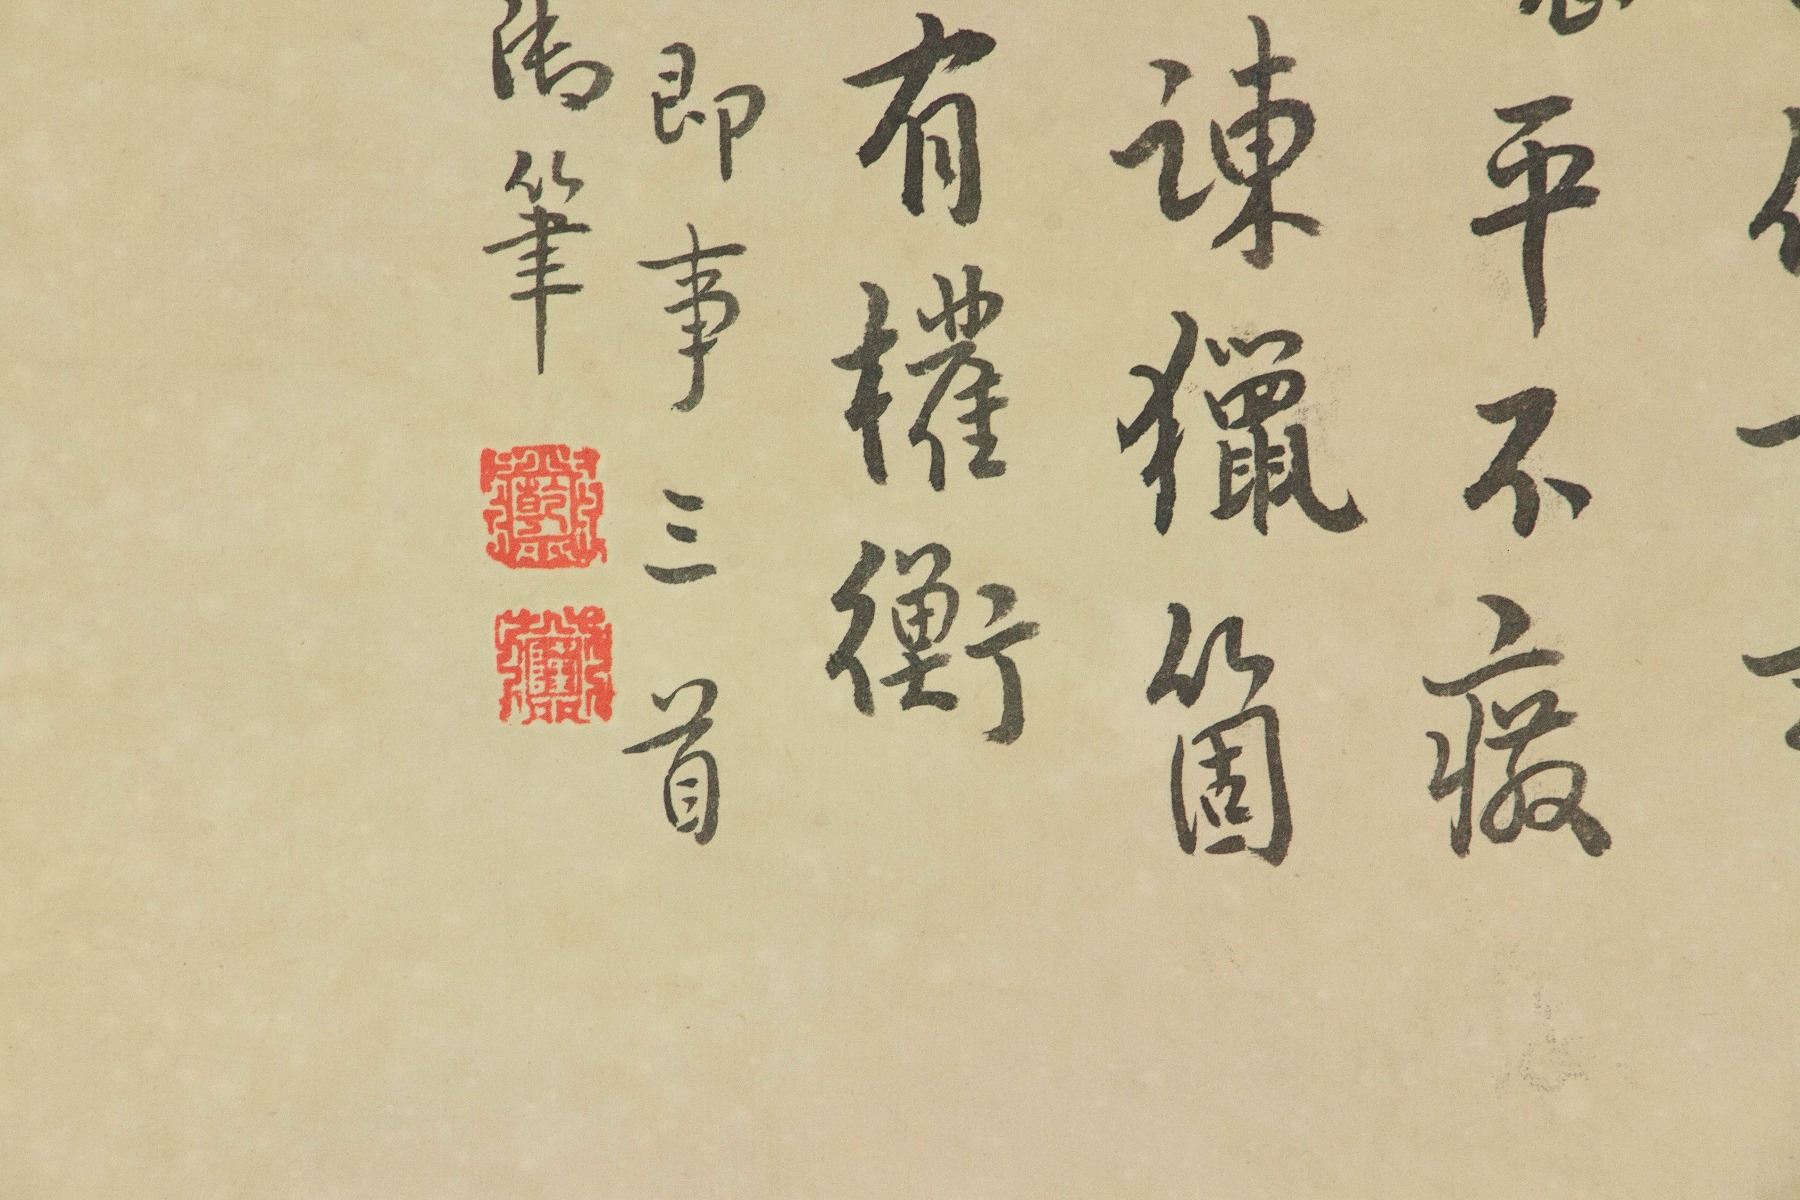 平不癈
諌獵箇
有權衡
即事三首
御筆